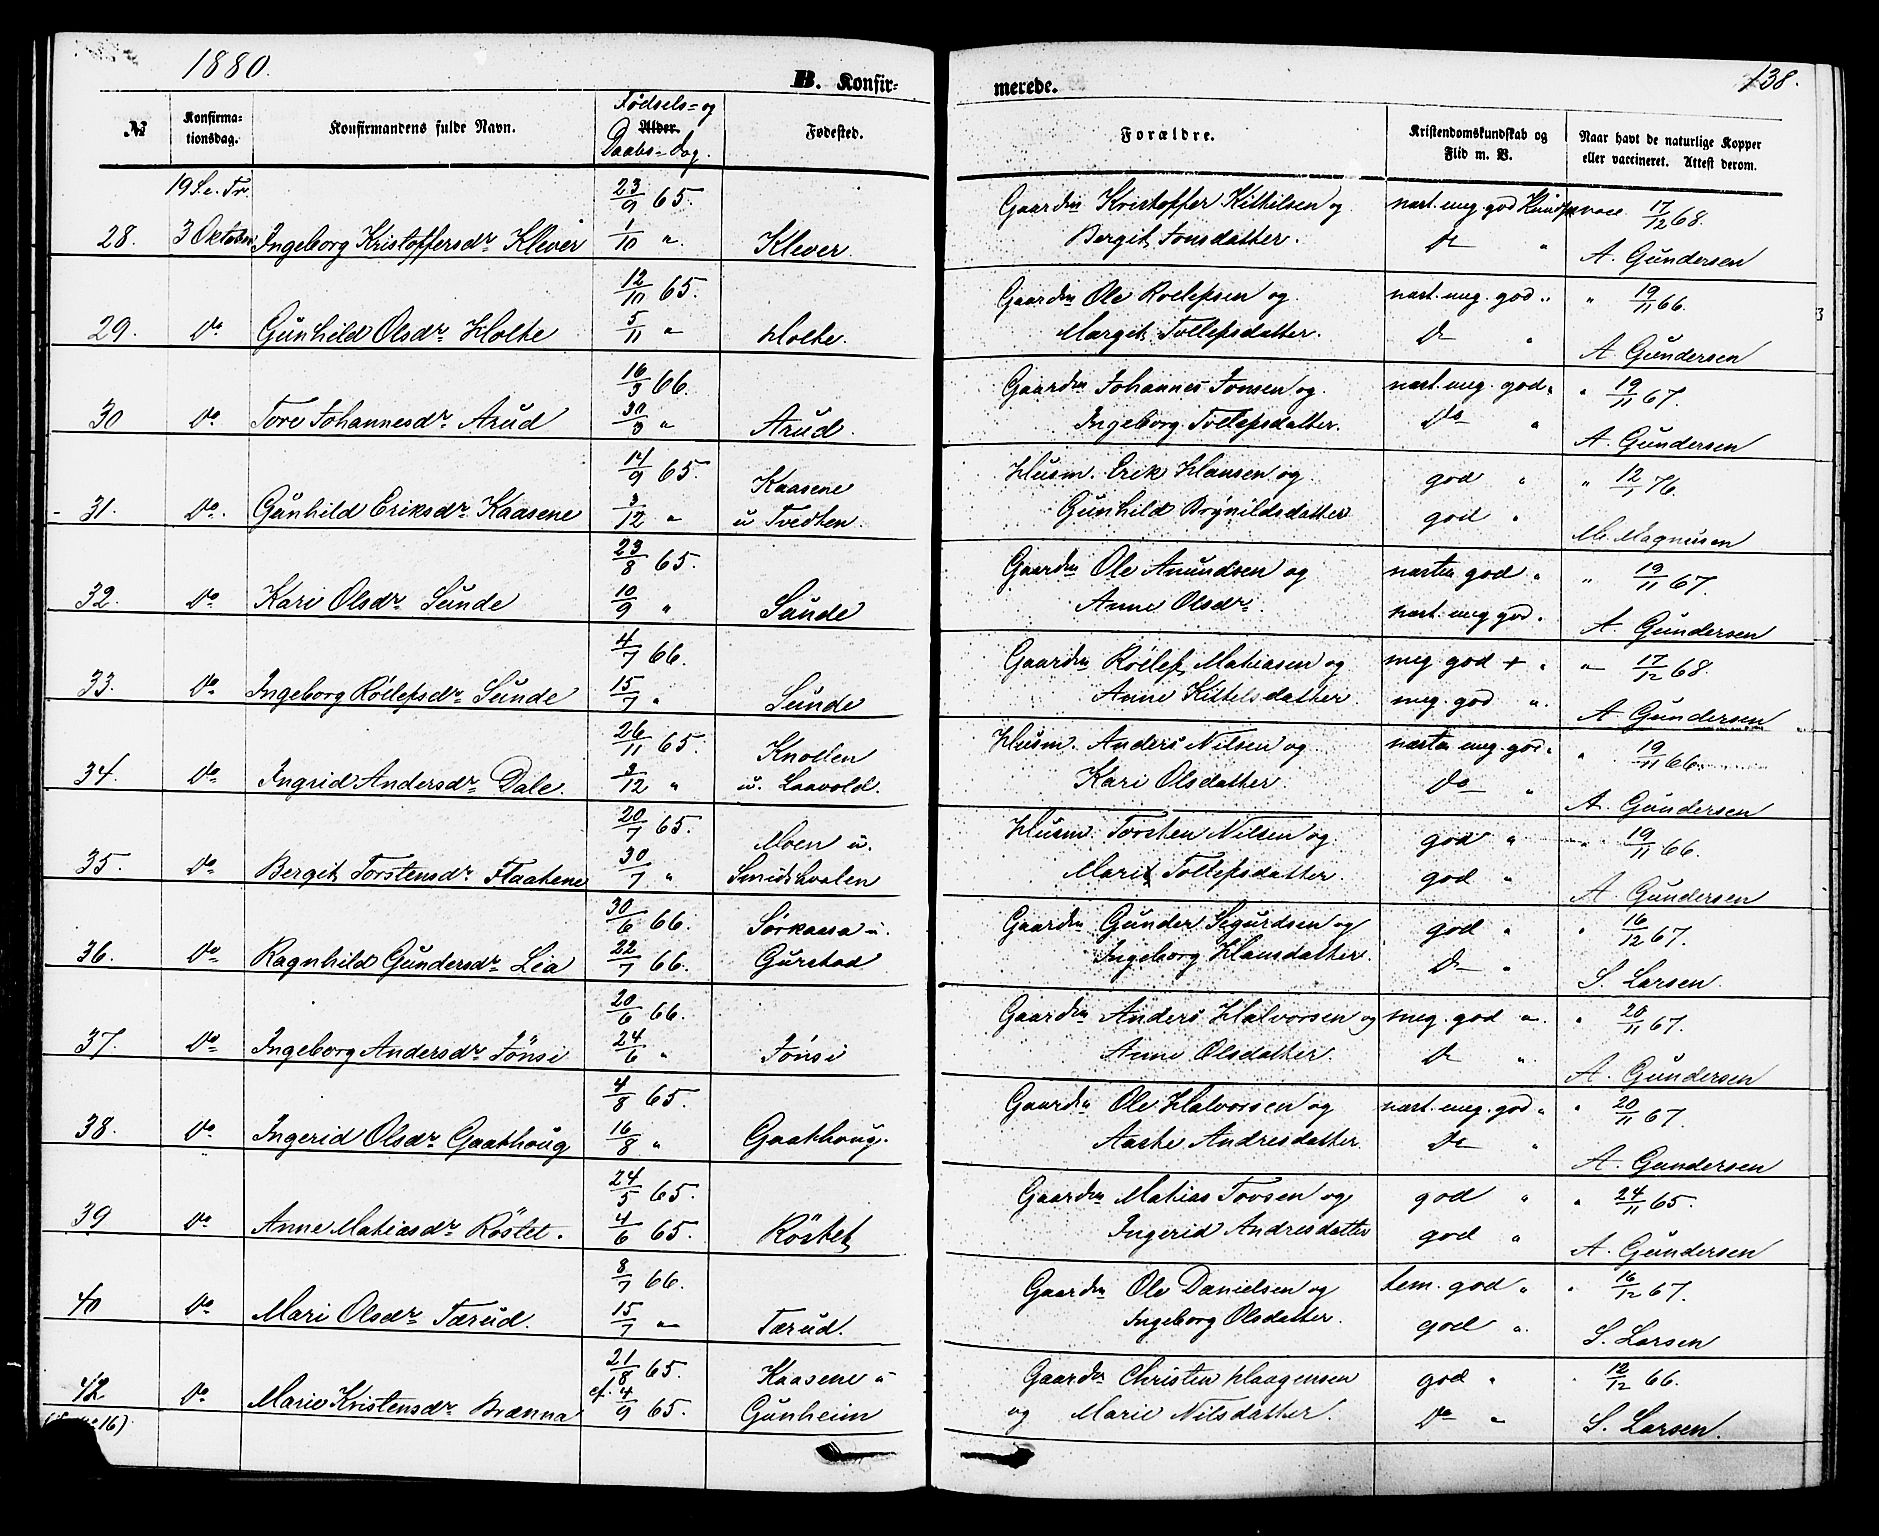 1880.
B. Konfir-
merede.
138.
№
Konfirma-
tionsdag.
Konfirmandens fulde Navn.
Fødsels- og
Alder.
Daabs-dag.
Fødested.
Forældre.
Kristendomskundskab og
Flid m. V.
Naar havt de naturlige Kopper
eller vaccineret. Attest derom.
19 S. e. Tr. 23/9 65. Gaardm Kristoffer Kittilsen og nært. meg. god vacc. 17/12 68.
28. 3 Oktober Ingeborg Kristoffersdr Klever 1/10 " Klever. Bergit Jonsdatter. Do " A. Gundersen
12/10 65. Gaardm Ole Roelefsen og nært. meg. god " " 19/11 66.
29. Do Gunhild Olsdr Holte 5/11 " Holte. Margit Tollefsdatter. Do " A Gundersen
16/3 66. Gaardm Johannes Jonsen og nært. meg. god " " 19/11 67.
30 Do Tore Johannesdr Arud 30/3 " Arud. Ingeborg Tollefsdatter. Do " A. Gundersen
14/9 65. Kaasene Husm. Erik Hansen og god " " 12/1 76.
31. Do. Gunhild Eriksdr Kaasene 3/12 " u Tvedten. Gunhild Brynildsdatter god " M. Magnusen
23/8 65. Gaardm Ole Amundsen og næsten god " " 19/11 67.
32. Do Kari Olsdr Sunde 10/9 " Sunde Anne Olsdr. nært. meg god. A. Gundersen
4/7 66. Gaardm Roelef Mathiasen og meg. god + " " 17/12 68.
33. Do Ingeborg Röelefsdr Sunde 15/7 " Sunde Anne Kittelsdatter meg. god " A Gundersen
26/11 65. Knollen Husm. Anders Nilsen og næsten meg. god " " 19/11 66.
34. Do Ingrid Andersdr Dale. 3/12 " u. Laavold. Kari Olsdatter. Do " A. Gundersen
20/7 65. Moen u. Husm. Torsten Nilsen og god " " 19/11 66.
35. Do Bergit Torstensdr Flaatene 30/7 " Smidshvalen Marit Tollefsdatter. god " A Gundersen
30/6 66. Sørkaasa u. Gaardm Gunder Sigurdsen og god " " 16/12 67.
36. Do Ragnhild Gundersdr Lia 22/7 66. Gurstad Ingeborg Hansdatter. Do " S. Larsen.
20/6 66. Gaardm Anders Halvorsen og meg. god " " 20/11 67.
37. Do Ingeborg Andersdr Jönsi 24/6 " Jönsi Anne Olsdatter. Do " A. Gundersen
4/8 65. Gaardm Ole Halvorsen og nært. meg. god " " 20/11 67.
38. Do Ingerid Olsdr Gaathoug 16/8 " Gaathoug. Aaste Andresdatter Do " A. Gundersen
24/5 65. Gaardm Mathias Tovsen og god " " 24/11 65.
39 Do Anne Matiasdr Röstet. 4/6 65. Röstet Ingerid Andresdatter god " A. Gundersen
8/7 66. Gaardm Ole Danielsen og tem. god " " 16/12 67.
40 Do Mari Olsdr Tærud. 15/7 " Tærud. Ingeborg Olsdatter. god " S. Larsen
21/8 65. Kaasene u Gaardm Christen Haagensen god " " 12/12 66.
42 Do Marie Kristensdr Brænna 4/9 65. Gunheim og Marie Nilsdatter. Do " S. Larsen.
16)